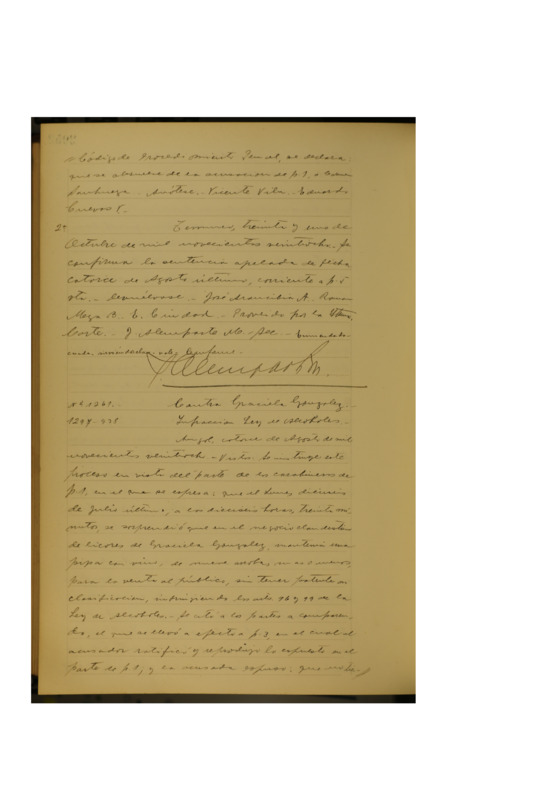 Código de Procedimiento Penal, se declara:
que se absuelve de la acusacion de f. 1, a
Anótese. - Vicente Vita. - Eduardo
Cuevas V.
2a Temuco, treinta y uno de
Octubre de mil novecientos veintiocho. Se
confirma la sentencia apelada de fecha
catorce de Agosto último, corriente a f. 5
vta. - Devuélvase. - José Maxcilio A. Roman
Meza B. E. Ciudad. - Proveido por la Iltma.
Corte. - J. Alemparte M. - Sec. -
N.o 1261. - Contra Graciela Gonzalez. -
Infraccion Ley de Alcoholes. -
Angol, catorce de Agosto de mil
novecientos veintiocho. - Vistos: Se instruye este
proceso en vista del parte de los carabineros de
f. 1, en el cual se espresa: que el Lunes dieciseis
de Julio último, a las dieciseis horas treinta mi
nutos, se sorprendió que en el negocio clandestino
de licores de Graciela Gonzalez, mantenia una
pipa con vino, de nueve arrobas, mas o menos,
para la venta al público, sin tener patente ni
clasificacion, infrinjiendo los arts 76 y 99 de la
Ley de Alcoholes. - Se citó a las partes a comparen
do, el que se llevó a efecto a f. 3, en el cual el
acusador ratificó y reprodujo lo espuesto en el
parte de f. 1; y la acusada espuso: que